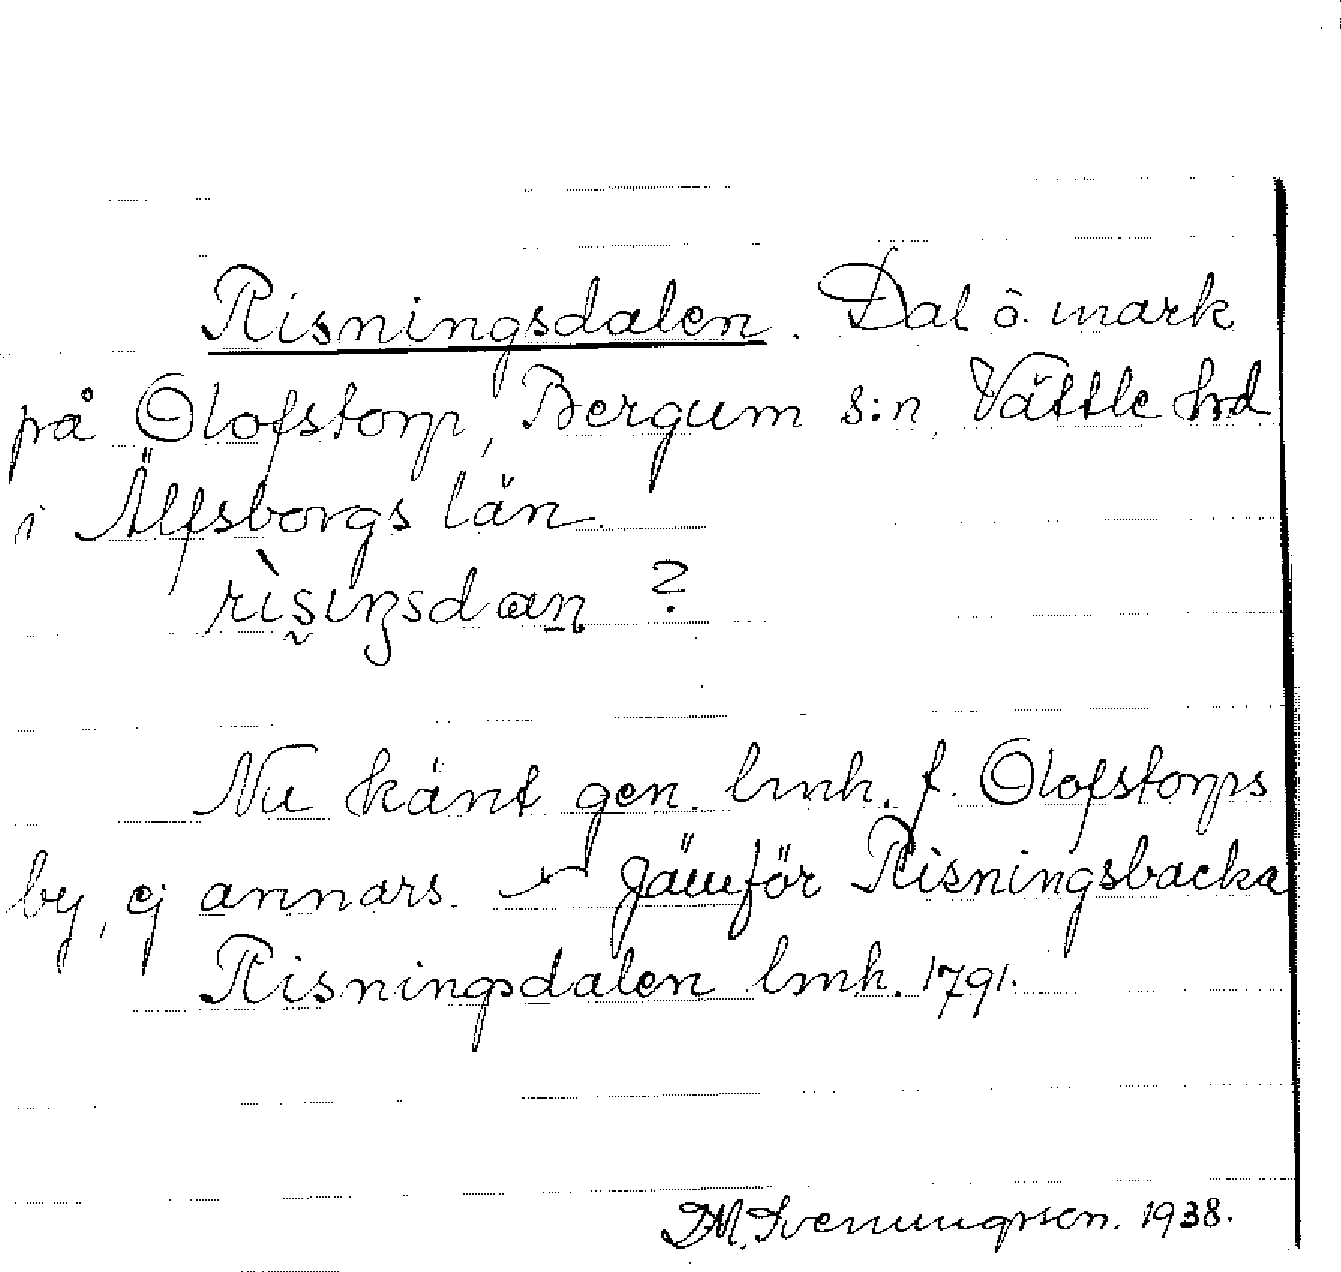 Risningsdalen. Dal o. mark
på Olofstorp, Bergum s:n, Vättle hrd
i Älfsborgs län.
?
Nu känt gen. lmh. f. Olofstorps
by, ej annars. Jämför Risningsbacka
Risningsdalen lmh. 1791.
D.M. Svenungsson. 1938.